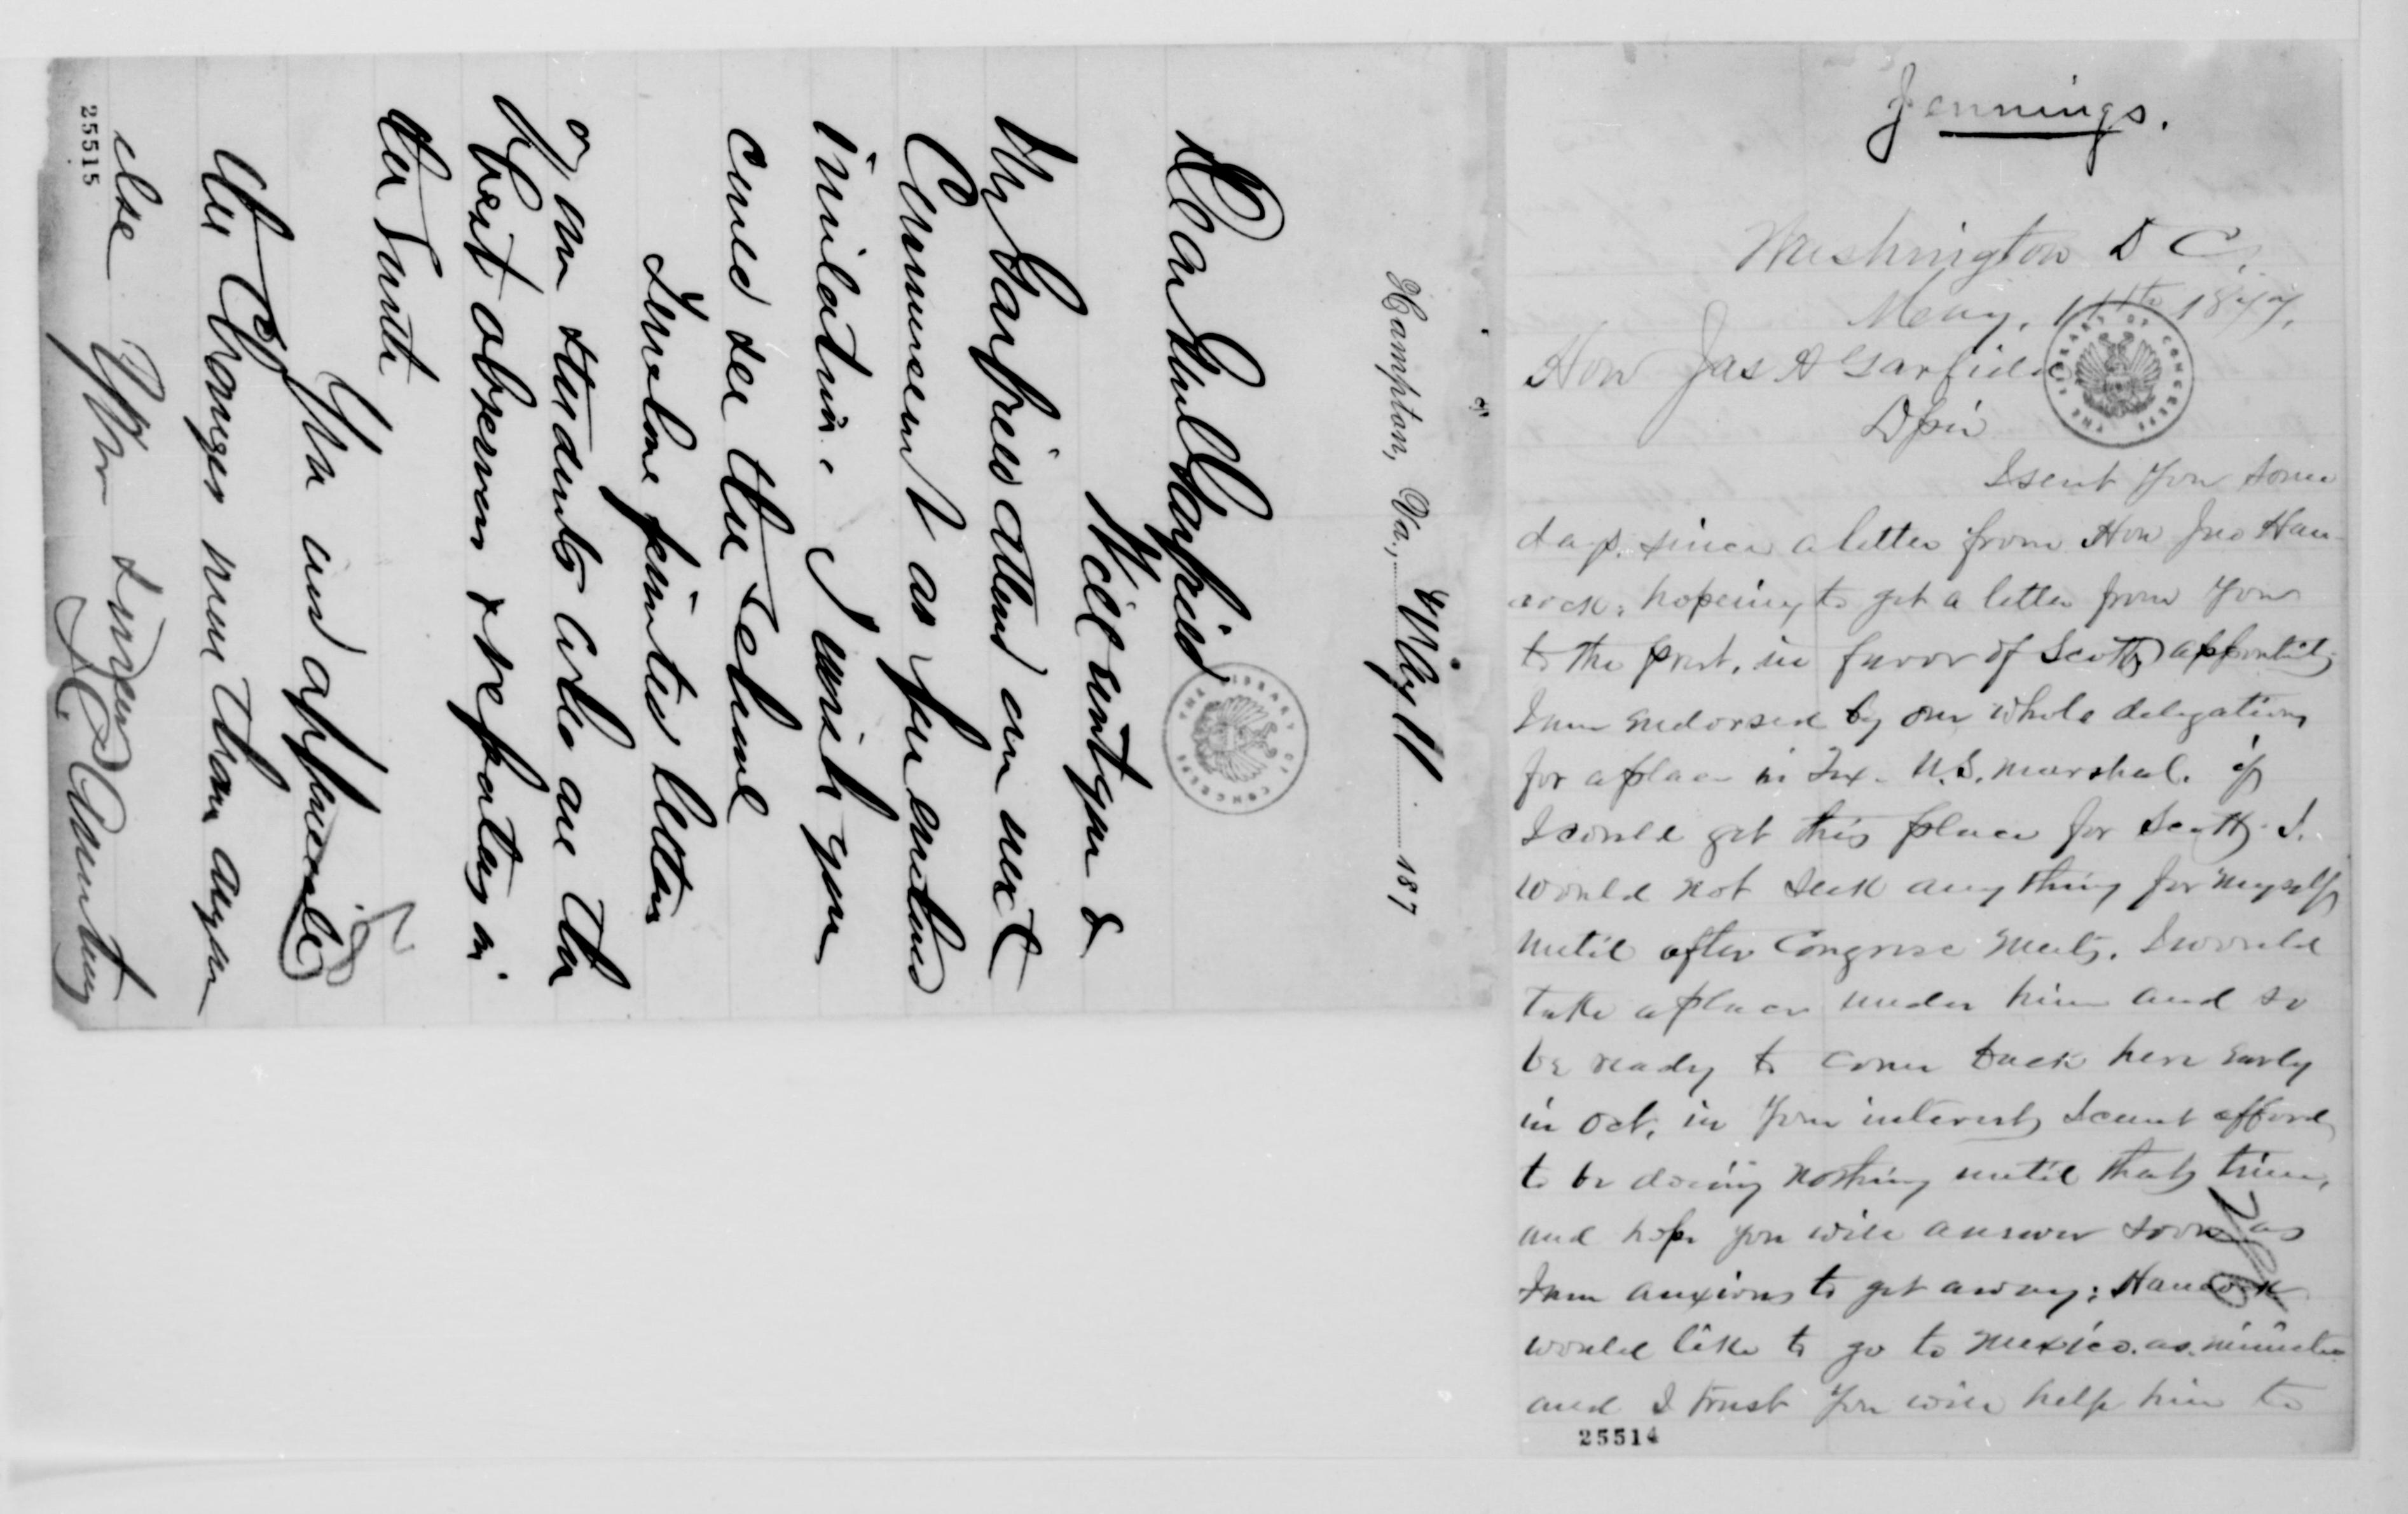 Hampton, Va., May 11 187
Dear Genl Garfield
Will not you &
Mrs Garfield attend our next
Commencement as per enclosed
invitation. I wish you
could see the School
Several printed letters
of our students who are the
best observers & reporters in
the South
You and apprenale
the Changes more than anyone
else Yrs Sincerely
S. C. Armstrong
25515
Jennings.
Washington D C
May, 11th 1877.
Hon Jas A Garfield
D Sir
I sent you some
days, since a letter from Hon Jno Han-
cock, hopeing to get a letter from you
to the prest, in favor of Scotts appointmt
I am endorsed by our whole delegation
for a place in Tex. U.S. marshal. if
I could get this place for Scott. I.
would not seek any thing for myself
until after Congress meets. I would
take a place under him and so
be ready to come back here early
in Oct, in your interest, I cant afford
to be doeing nothing until that, time,
and hope you will answer soon as
I am anxious to get away; Hancock
would like to go to mexico. as. minister
and I trust you will help him to
25514
THE LIBRARY OF CONGRESS
THE LIBRARY OF CONGRESS